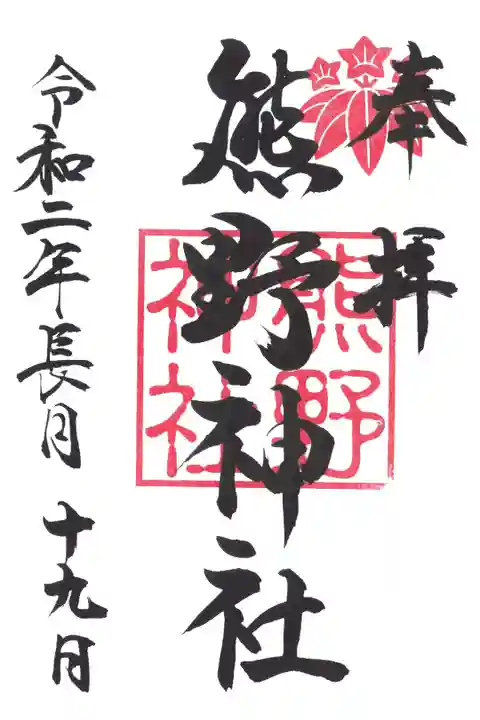 奉拝
熊野神社
熊野
神社
令和二年長月 十九日